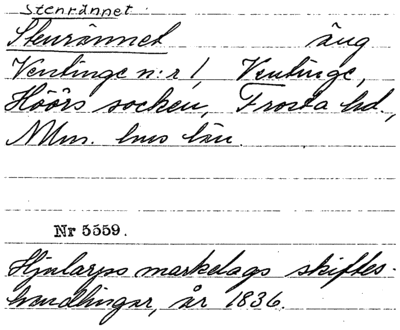 Stenrännet.
Stenrännet äng
Ventinge n:r 1, Ventinge,
Höörs socken, Frosta hd.,
Mlm. hus län.
Nr 5559.
Hjularps markelags skiftes-
handlingar, år 1836.